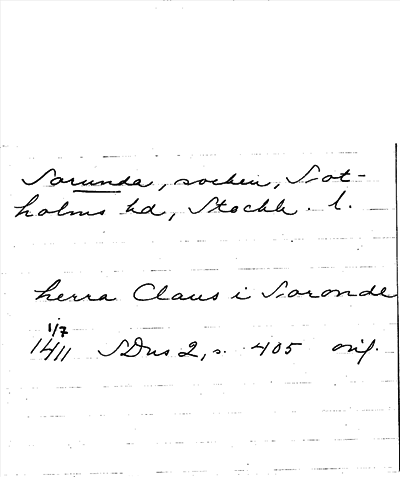 Sorunda, socken, Sot-
holms hd, Stockh. l.
herra Claus i Soronde
1/7
1411 SDns 2, s. 405 orig.